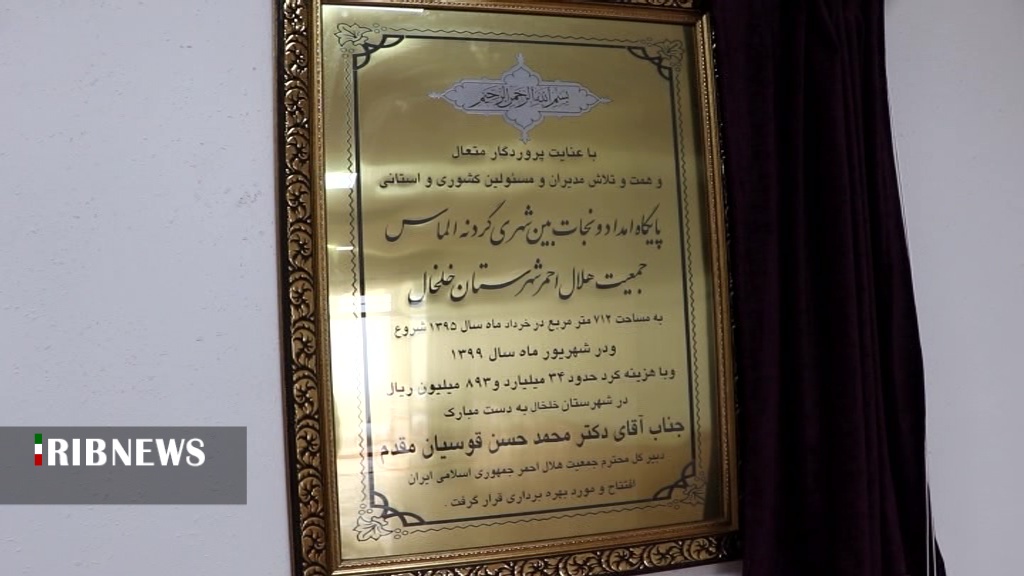 بسم الله الرحمن الرحیم
با عنایت پروردگار متعال
و همت و تلاش مدیران و مسئولین کشوری و استانی
پایگاه امداد و نجات بین شهری گردنه الماس
جمعیت هلال احمر شهرستان خلخال
به مساحت ۷۱۲ متر مربع در خرداد ماه سال ۱۳۹۵ شروع
ودر شهریور ماه سال ۱۳۹۹
وبا هزینه کرد حدود ۳۴ میلیارد و ۸۹۳ میلیون ریال
در شهرستان خلخال به دست مبارک
جناب آقای دکتر محمد حسن قوسیان مقدم
دبیر کل محترم جمعیت هلال احمر جمهوری اسلامی ایران
افتتاح و مورد بهره برداری قرار گرفت .
IRIBNEWS